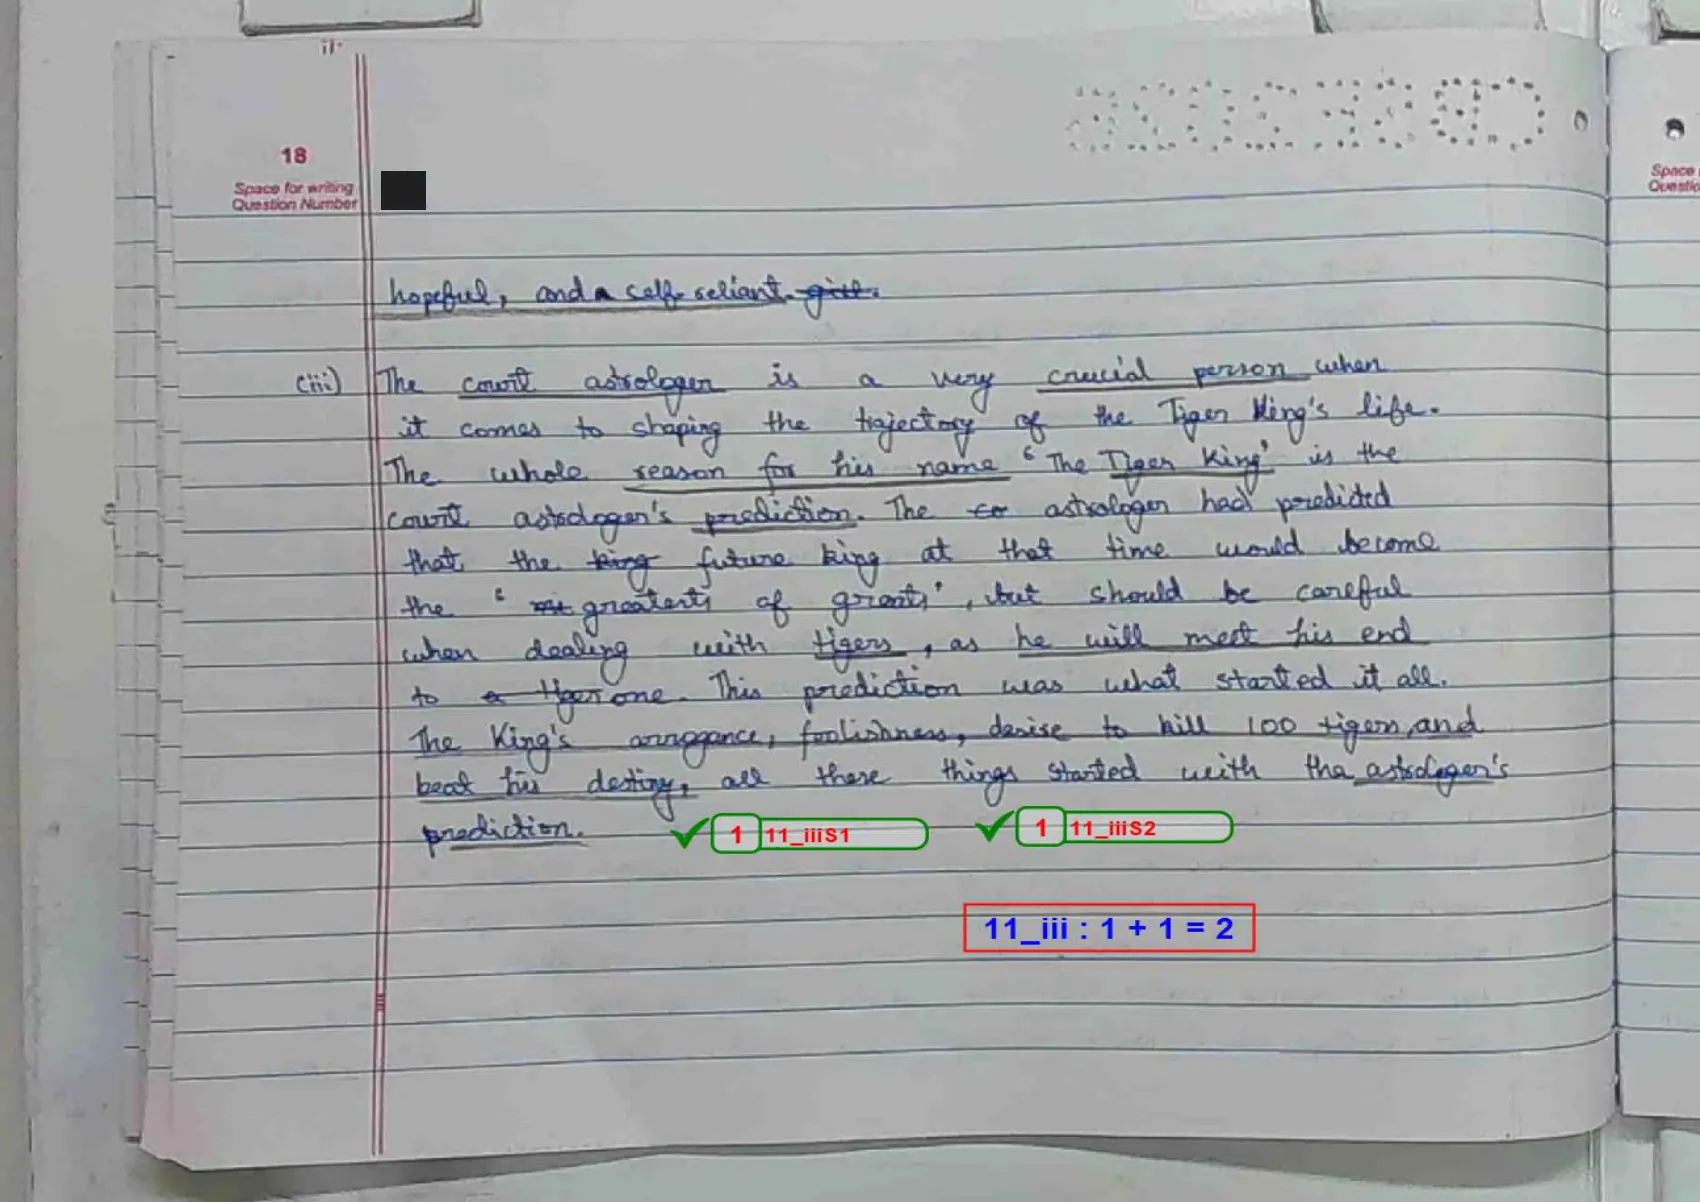 18
Space for writing
Question Number
hopeful, and a self-reliant girl.
(iii) The court astrologer is a very crucial person when
it comes to shaping the trajectory of the Tiger King's life.
The whole reason for his name 'The Tiger King' is the
court astrologer's prediction. The co astrologer had predicted
that the king future king at that time would become
the ' greatests of greats', but should be careful
when dealing with tigers, as he will meet his end
to a tiger one. This prediction was what started it all.
The King's arrogance, foolishness, desire to kill 100 tigers, and
beat his destiny, all these things started with the astrologer's
prediction.
1 11_iiiS1 1 11_iiiS2
11_iii : 1 + 1 = 2
Space
Questio